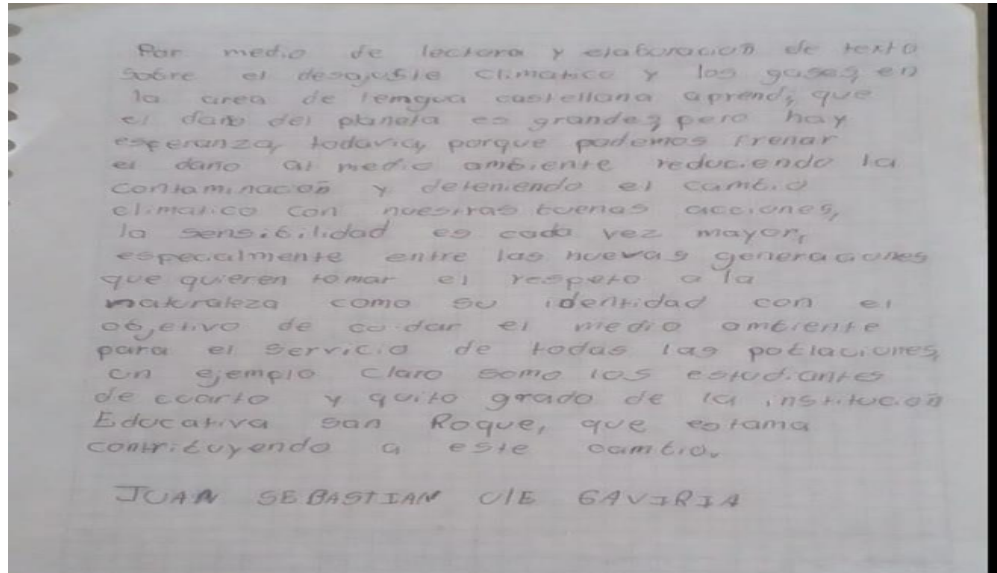 Por medio de lectora y elaboracion de texto
sobre el desajuste climatico y los gases, en
la area de lemgua castellana aprendi, que
el daño del planeta es grande, pero hay
esperanza, todavia, porque podemos frenar
el daño al medio ambiente reduciendo la
contaminacion y deteniendo el cambio
climatico con nuestras buenas acciones,
la sensibilidad es cada vez mayor,
especialmente entre las nuevas generaciones
que quieren tomar el respeto a la
naturaleza como su identidad con el
objetivo de cuidar el medio ambiente
para el servicio de todas las poblaciones,
un ejemplo claro somo los estudiantes
de cuarto y quito grado de la institucion
Educativa san Roque, que estama
contribuyendo a este cambio.
JUAN SEBASTIAN GAVIRIA